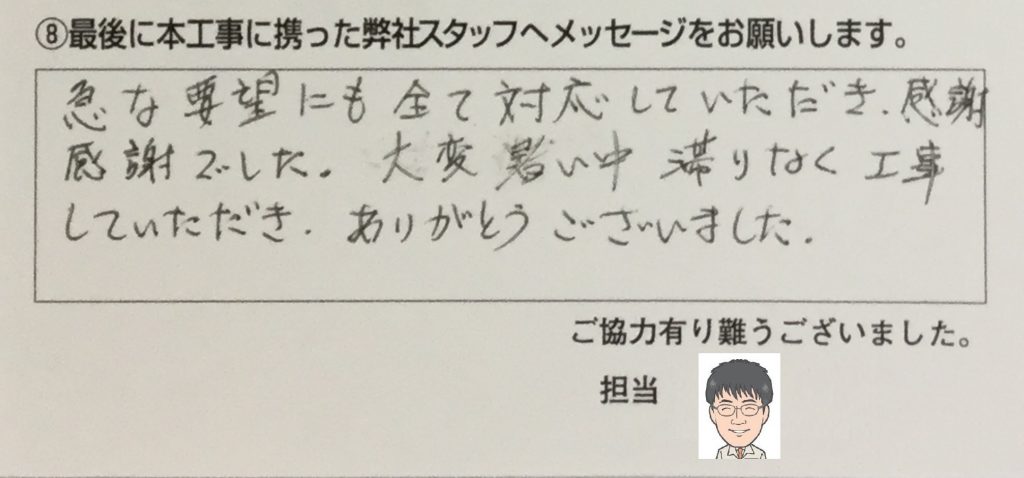 ⑧最後に本工事に携った弊社スタッフへメッセージをお願いします。
急な要望にも全て対応していただき、感謝
感謝でした。大変暑い中滞りなく工事
していただき、ありがとうございました。
ご協力有り難うございました。
担当